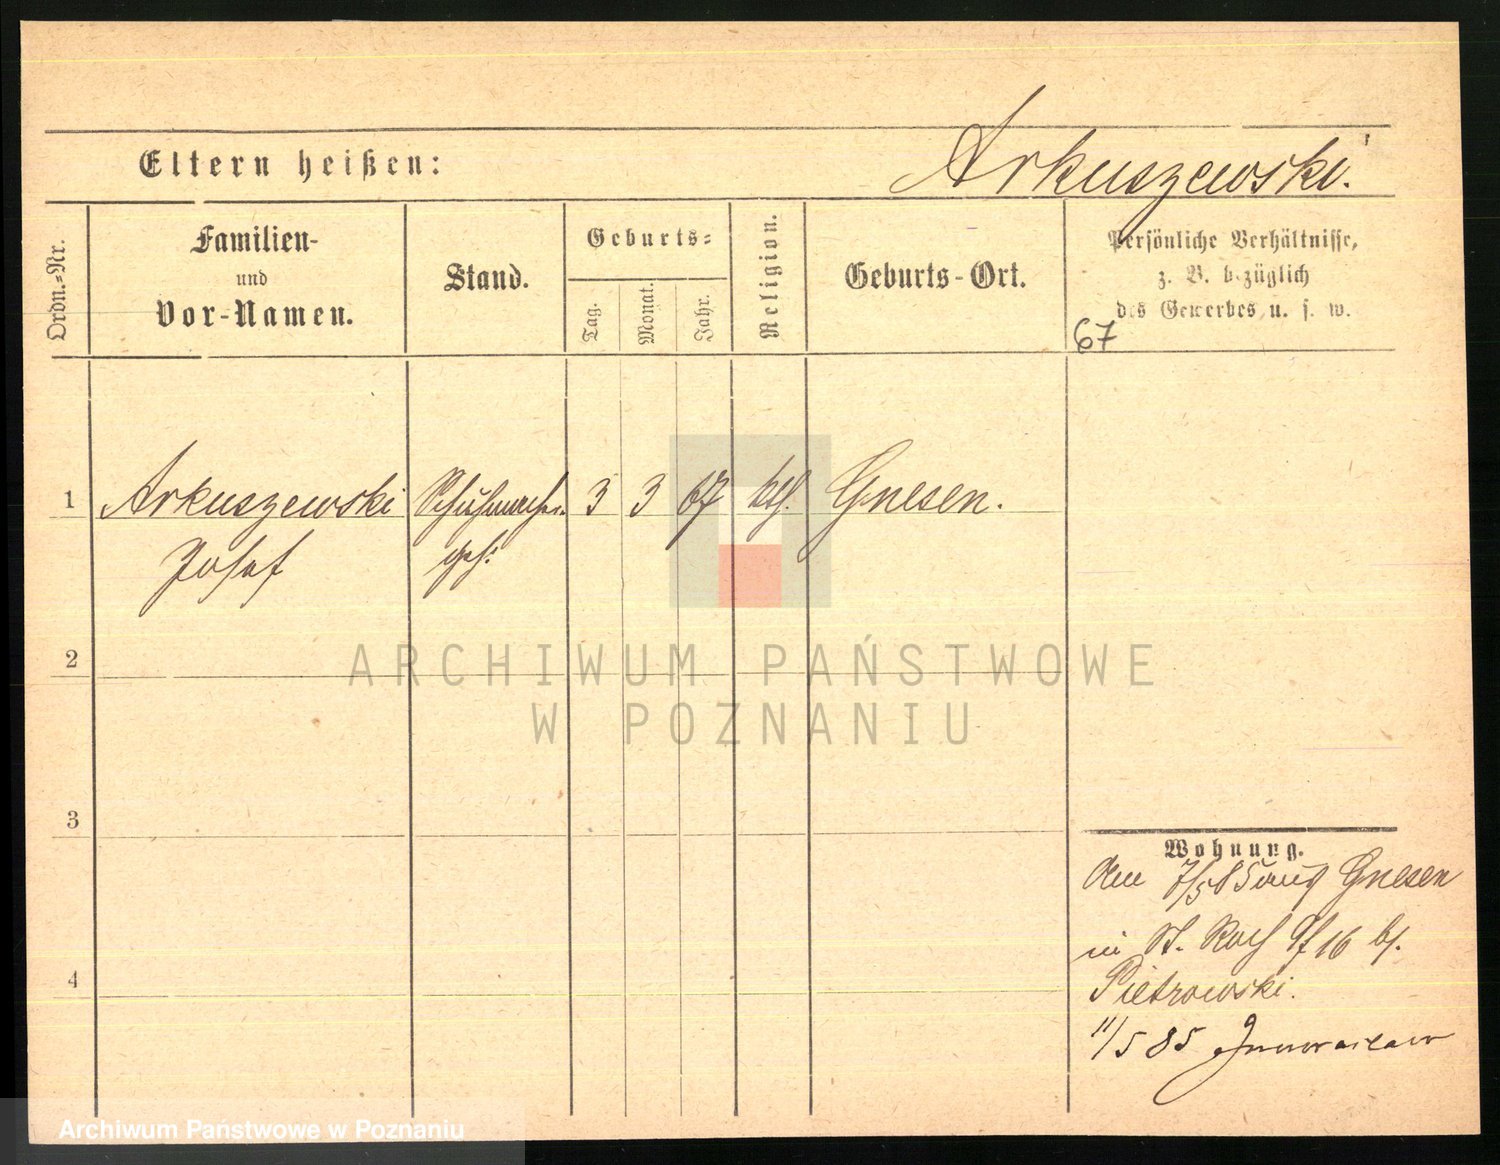 Eltern heißen:
Arkuszewski.
Ordn.-Nr.
Familien-
und
Vor-Namen.
Stand.
Geburts-
Tag.
Monat.
Jahr.
Religion.
Geburts-Ort.
Persönliche Verhältnisse,
z. B. bezüglich
des Gewerbes u. s. w.
67
1 Arkuszewski Schuhmacher 3 3 67 kth. Gnesen.
Josef ges:
2
ARCHIWUM PAŃSTWOWE
W POZNANIU
3
4
Wohnung.
7/5 85 Gnesen
in St. Roch 16 bj.
Pietrowski.
11/5 85 Inowraclaw
Archiwum Państwowe w Poznaniu